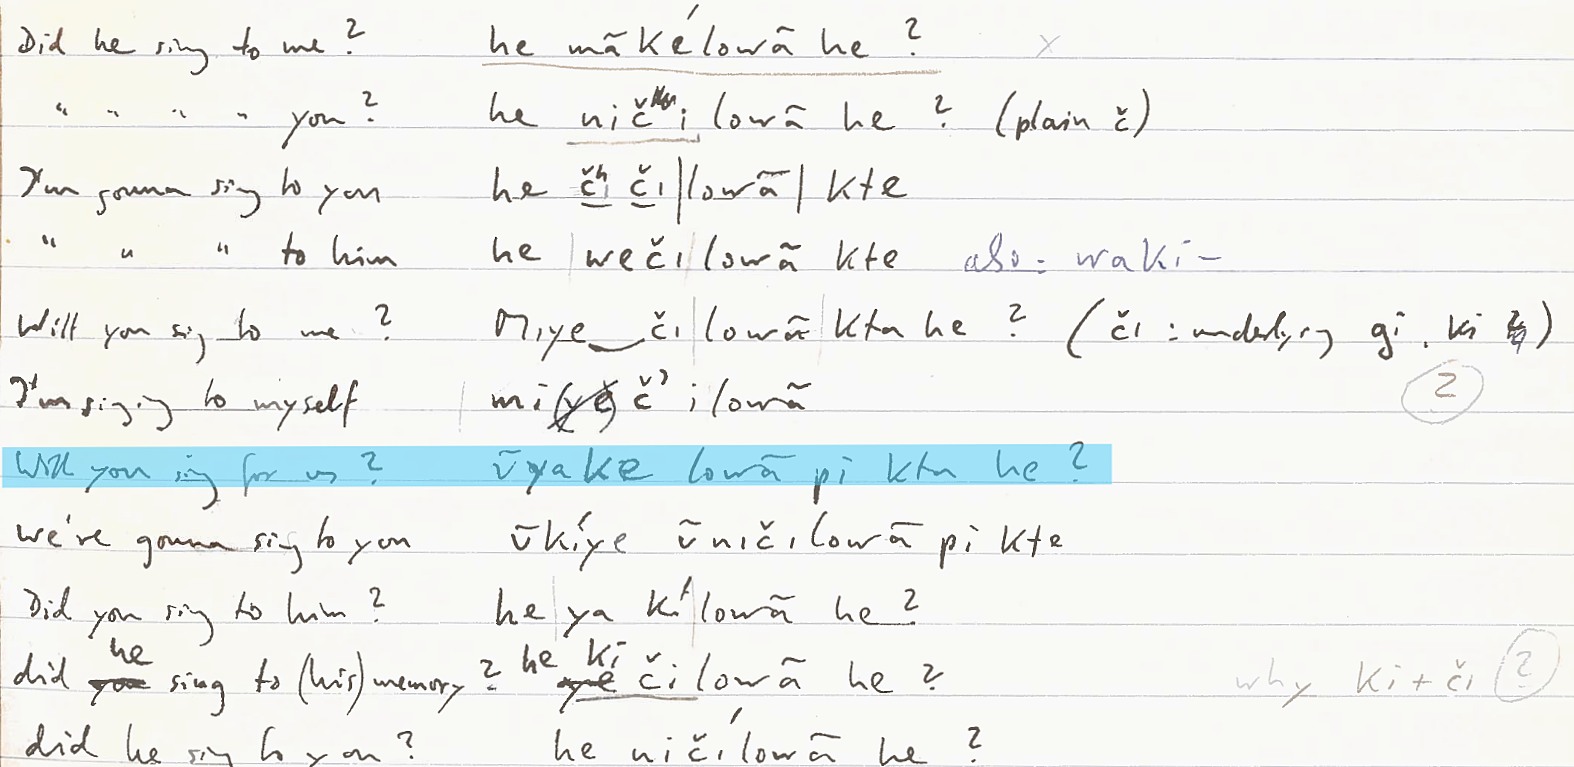 Did he sing to me? he mãkélowã he? x
" " " " you? he ničilowã he? (plain č)
I'm gonna sing to you he čʰi či|lowã| kte
" " " to him he |weči|lowã kte also: waki-
Will you sing to me? Miye či|lowã|kta he? (či: underlying gi, ki)
I'm singing to myself mi(ye)č'ilowã ?
Will you sing for us? ũyake lowã pi kta he?
We're gonna sing to you ũkíye ũničilowã pi kte
Did you sing to him? he|ya kí|lowã he?
did he sing to (his) memory? he ki čilowã he? why ki+či ?
did he sing to you? he ničílowã he?